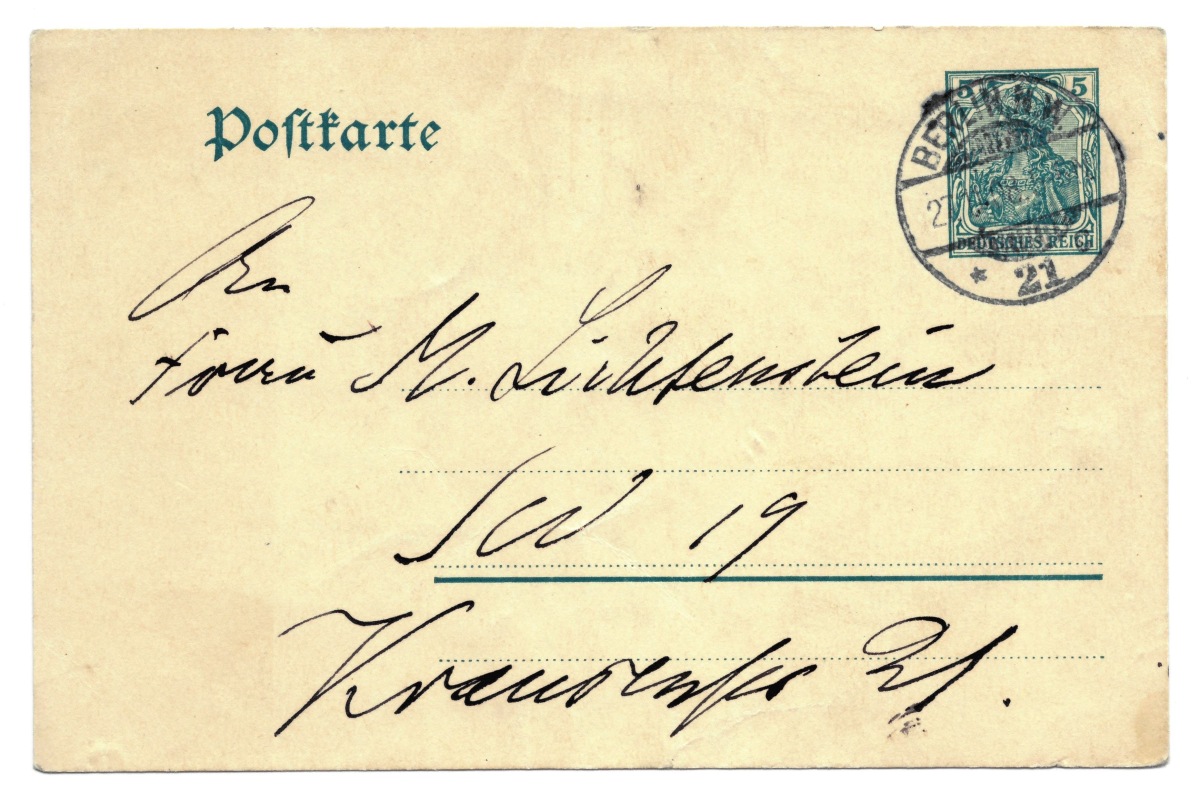 Postkarte
5
BERLIN N.W.
DEUTSCHES REICH
* 21
An
Frau M. Lichtenstein
SW 19
Krausenstr 21.